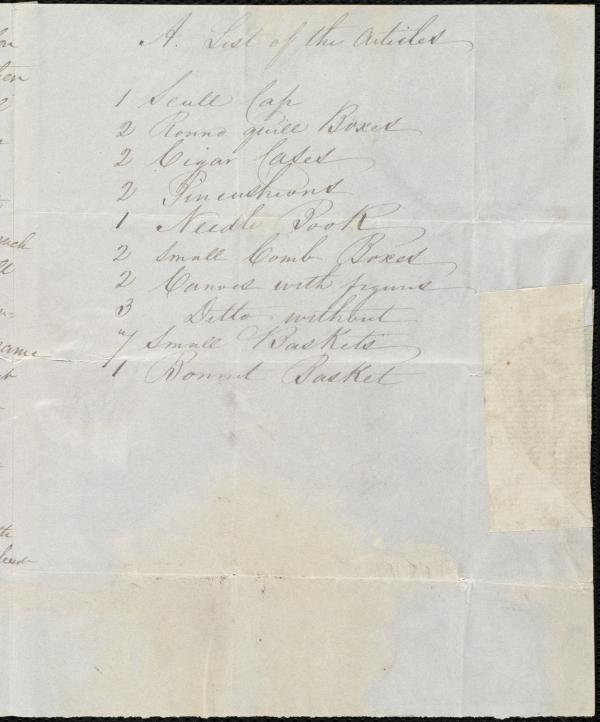 A. List of the Articles
1 Scull Cap
2 Round quill Boxes
2 Cigar Cases
2 Pincushions
1 Needle Book
2 Small Comb Boxes
2 Canoes with figures
3 Ditto without
7 Small Baskets
1 Bonnet Basket